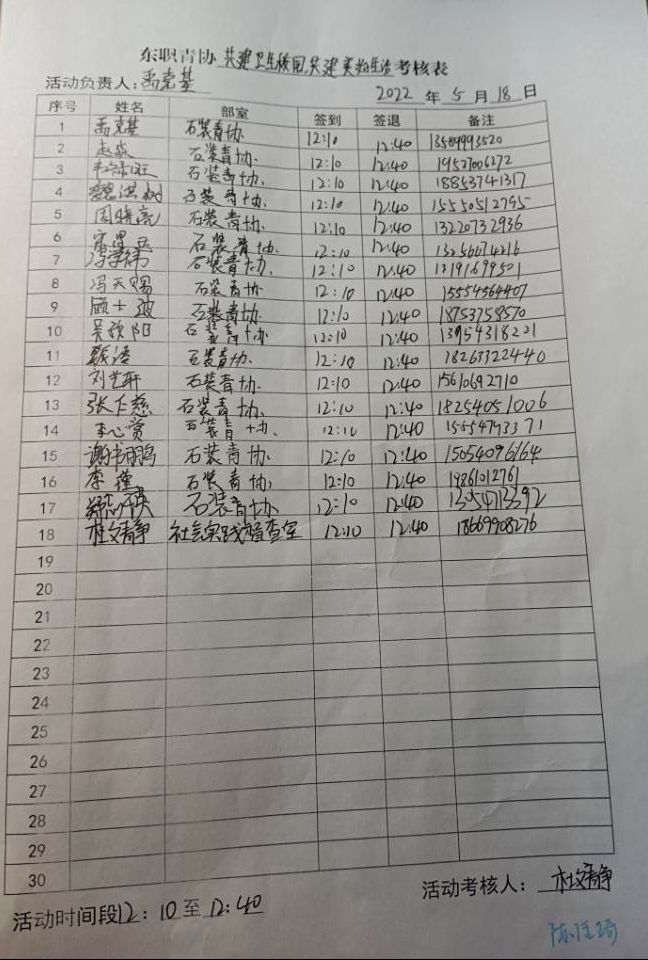 东职青协 共建卫生校园,共建美好生活 考核表
活动负责人: 禹克基
2022 年 5 月 18 日
序号 姓名 部室 签到 签退 备注
1 禹克基 石装青协 12:10 12:40
2 赵淼 石装青协 12:10 12:40 19527006272
3 石装青协 12:10 12:40 18853741317
4 魏洪树 石装青协 12:10 12:40 15550512795
5 周晓亮 石装青协 12:10 12:40 13220732936
6 石装青协 12:10 12:40
7 冯学伟 石装青协 12:10 12:40 13191699501
8 冯天赐 石装青协 12:10 12:40 15554564407
9 顾士波 石装青协 12:10 12:40 18753758570
10 吴欣阳 石装青协 12:10 12:40 13954318221
11 石装青协 12:10 12:40 18263322440
12 刘艺轩 石装青协 12:10 12:40 15610692710
13 张仁慈 石装青协 12:10 12:40 18254051006
14 李心赏 石装青协 12:10 12:40
15 谢书鹏 石装青协 12:10 12:40 15054096164
16 李 石装青协 12:10 12:40 19361012761
17 石装青协 12:10 12:40
18 杜文静 社会实践稽查室 12:10 12:40 18669908276
19
20
21
22
23
24
25
26
27
28
29
30
活动考核人: 杜文静
活动时间段12:10至12:40